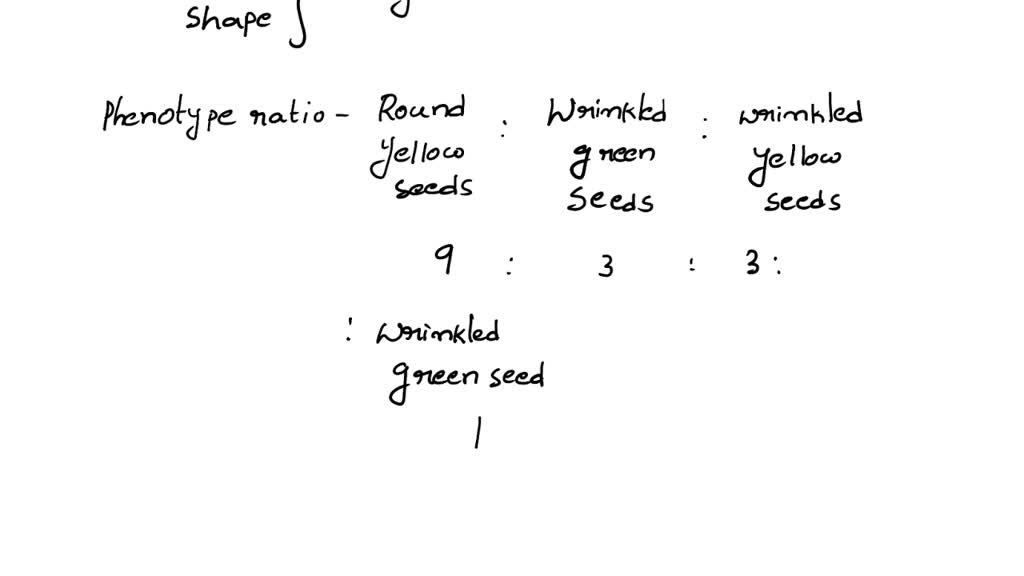 Shape
Phenotype ratio - Round : Wrinkled : wrinkled
yellow green yellow
seeds Seeds seeds
9 : 3 : 3 :
: wrinkled
green seed
1